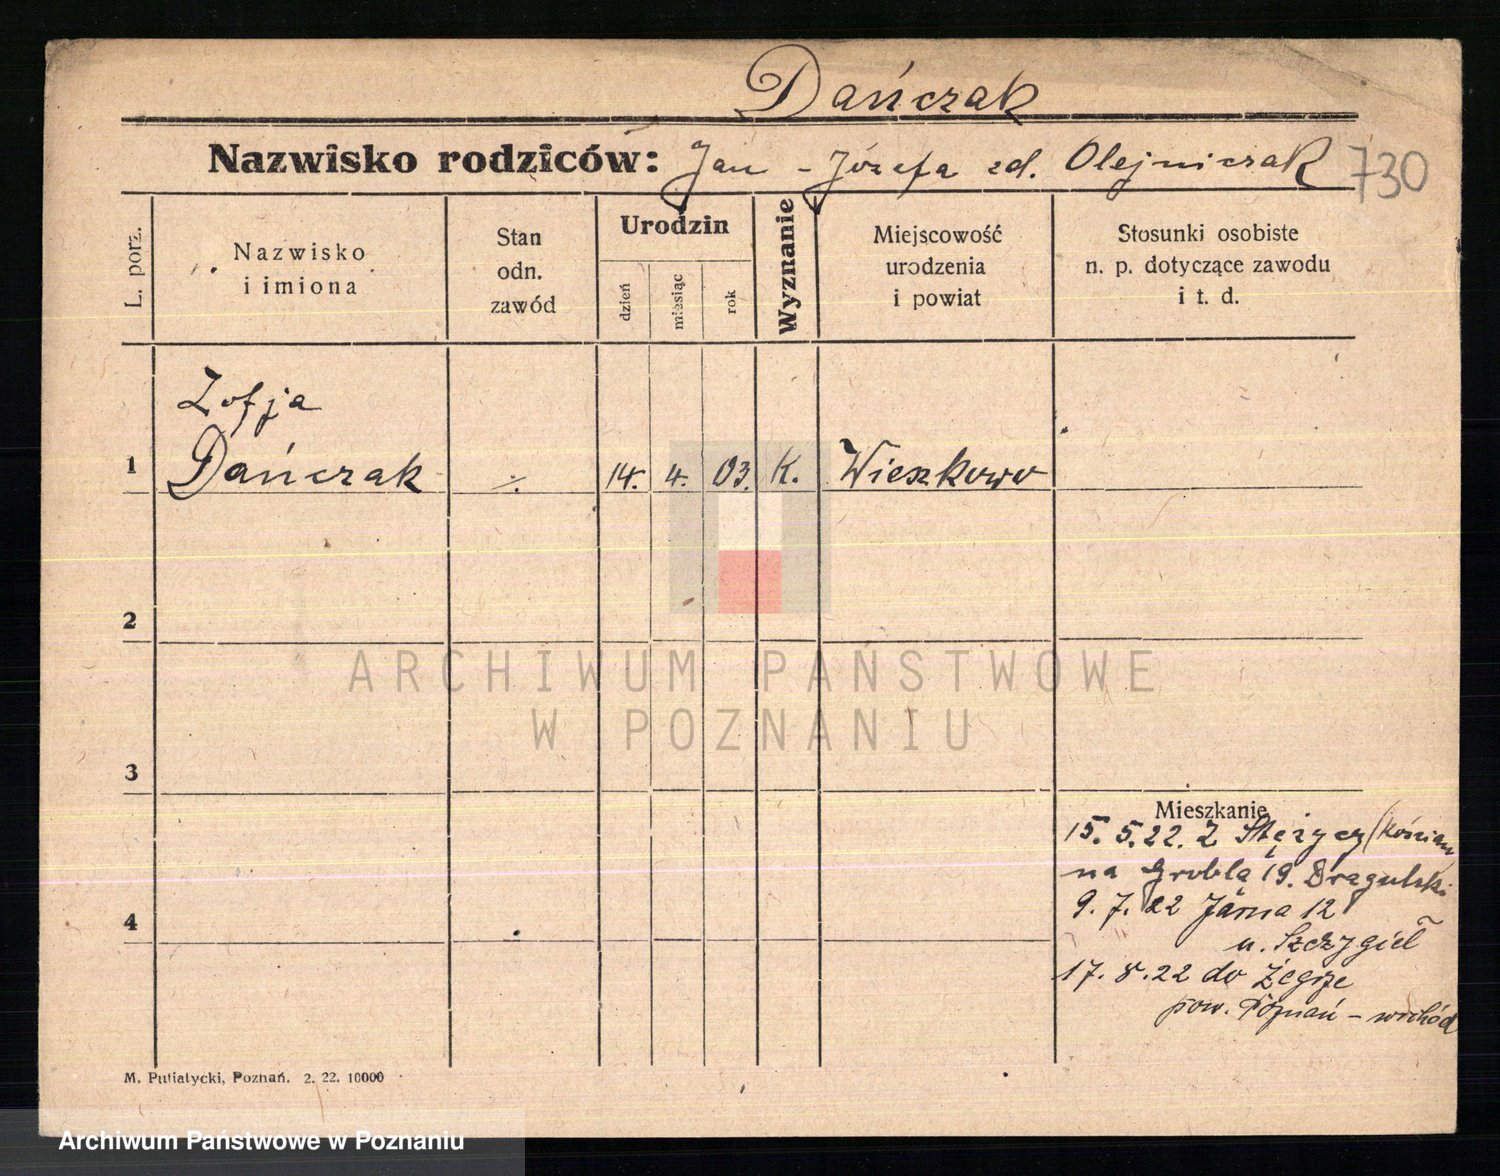 Dańczak
Nazwisko rodziców: Jan - Józefa zd. Olejniczak 730
L. porz.
Nazwisko
i imiona
Stan
odn.
zawód
Urodzin
dzień
miesiąc
rok
Wyznanie
Miejscowość
urodzenia
i powiat
Stosunki osobiste
n. p. dotyczące zawodu
i t. d.
Zofja
1 Dańczak ÷ 14. 4. 03. K. Wieszkowo
2
3
Mieszkanie
15. 5. 22. Z Stężycy (Kościan
na Grobla 19. Dragulski
9. 7. 22 Jasna 12
u. Szczygieł
4
17. 8. 22 do Żegrze
pow. Poznań - wschód
M. Putiatycki, Poznań. 2. 22. 10000
ARCHIWUM PAŃSTWOWE
W POZNANIU
Archiwum Państwowe w Poznaniu